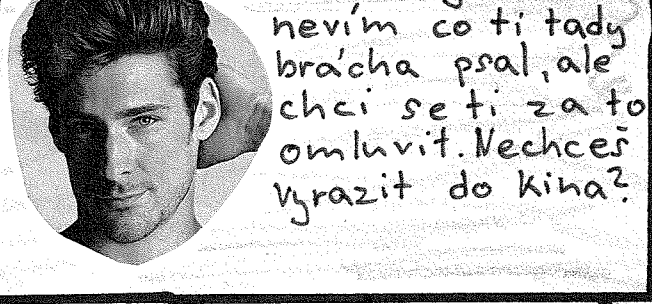 nevím co ti tady
brácha psal, ale
chci se ti za to
omluvit. Nechceš
vyrazit do kina?